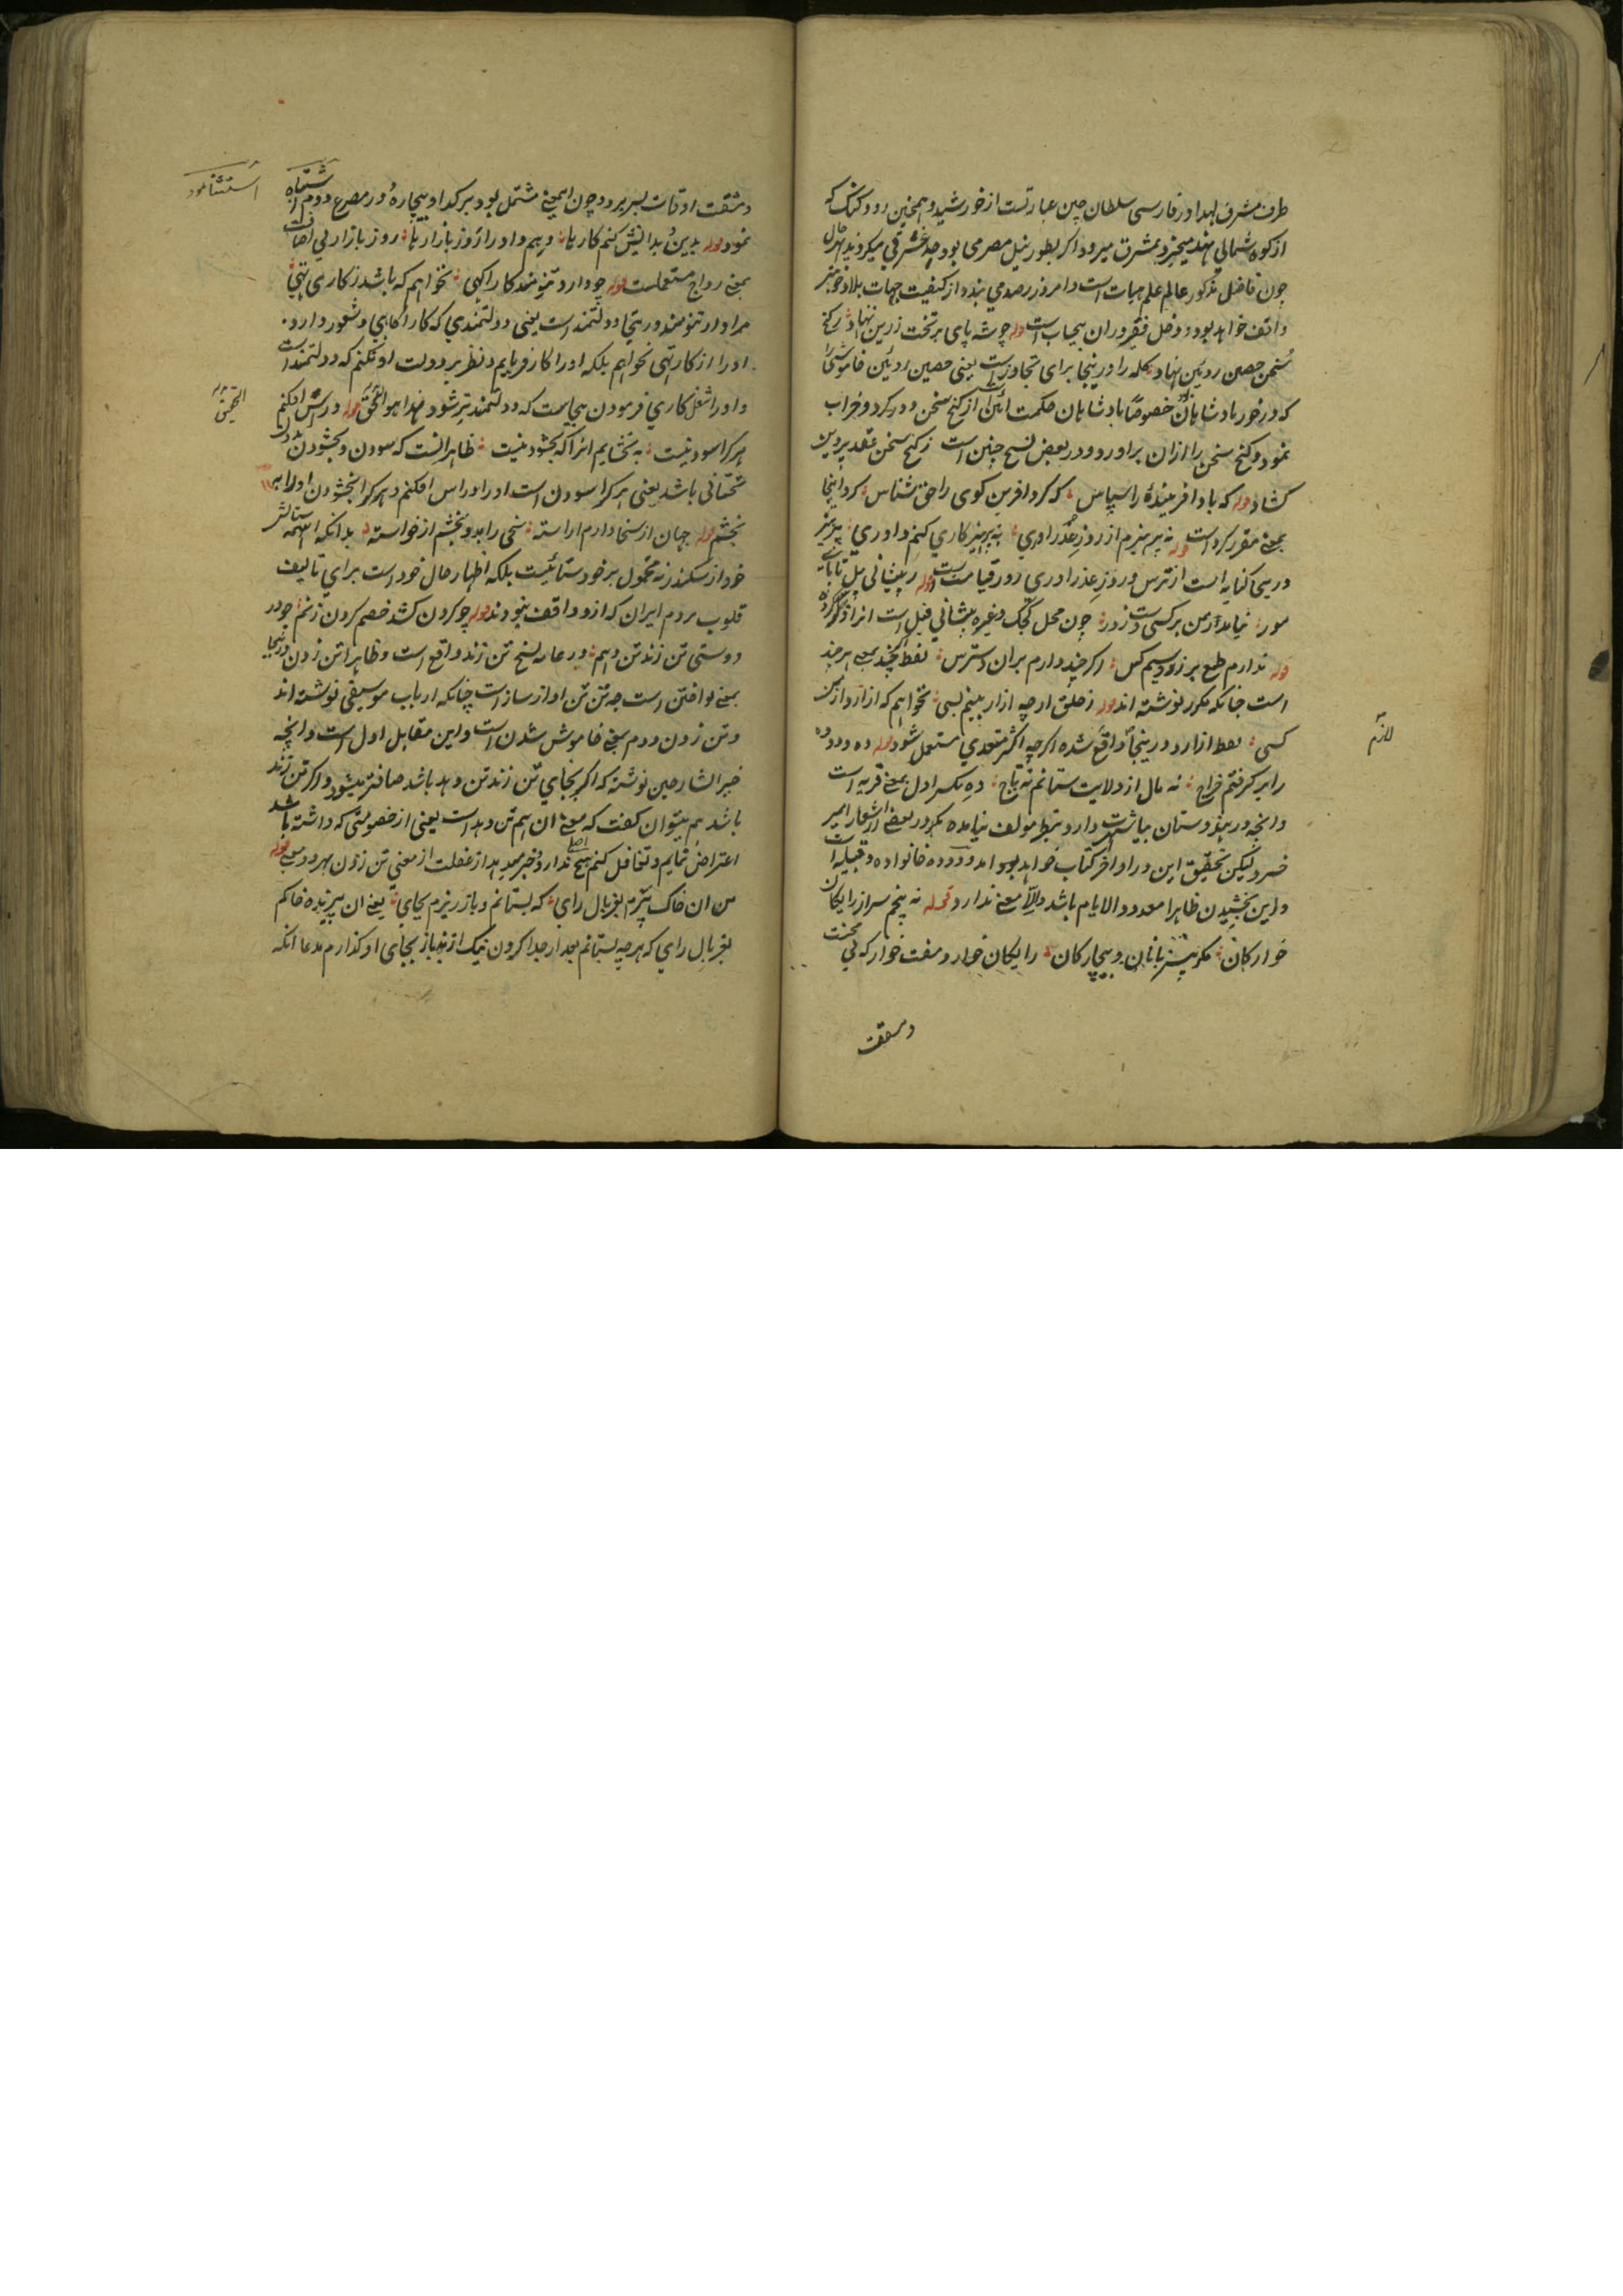 طرف مشرق بلد او در فارسی سلطان چین عبارتست از خورشید و همچنین رود کنک که
از کوه شمالی هند میخیزد و بمشرق میرود اکر بطور نیل مصر می بود جد مشرقی میکردند بهرحال
چون فاضل مذکور عالم علم هیات است و امروز رصد می بندد از کیفیت جهات بلاد خوبتر
واقف خواهد بود و دخل فقیر دران بیجاست وله چو شه پای بر تخت زرین نهاد ز کنج
سخن حصن روئین نهاد کله را درینجا برای تجاوز است یعنی حصین روئین خاموشی را
که در خور بادشاهان بود خصوصاً بادشاهان حکمت آئین از کنج سخن دور کرد و خراب
نمود و کنج سخن را ازان براورد و در بعض نسخ چنین است ز کنج سخن عقد پروین
کشاد وله که باد افریننده را سپاس که کرد افرین کوی را حق شناس کرد اینجا
بمعنی مقرر کرد است وله به پرهیزم از روز عذراوری به پرهیزکاری کنم داوری پرهیز
درینجا کنایه است از ترس و روز عذراوری روز قیامت است وله ز پیشانی پیل تا پای
مور نیاید ز من بر کسی دست زور چون محل کجک وغیره پیشانی فیل است انرا ذکر کرده
وله ندارم طمع بر زر و سیم کس اکر چند دارم بران دسترس لفظ چند بمعنی هر چند
است چنانکه مکرر نوشته اند وله ز خلق ار چه ازار بینم بسی نخواهم که ازارد از من
کسی لفظ ازارد درینجا واقع شده اکرچه اکثر متعدی مستعمل شود وله ده و دوده
را بر کرفتم خراج نه مال از ولایت ستانم نه تاج ده بکسر اول بمعنی قریه است
وانچه در هندوستان بیا شهرت دارد بنظر مولف نیامده مکر در بعضی از اشعار امیر
خسرو لیکن تحقیق این در اواخر کتاب خواهد بود امد و دوده خانواده و قبیله است
و این بخشیدن ظاهرا معدود الایام باشد والا معنی ندارد قوله نه پنجم سر از رایکان
خوارکان مکر بی زبانان و بیچارکان رایکان خوار و مفت خوار که بی محنت
و مشقت
لازم
و مشقت اوقات بسر برد و چون این معنی مشتمل بود بر کدا و بیچاره در مصرع دوم اشتباه
نمود وله بدین بدانش کنم کار یا دهم داور از روز بازار یا روز بازار بی اضافت
بمعنی رواج مستعملست وله چو دارد تنومند کار اکهی نخواهم که باشد ز کاری تهی
مراد از تنومند درینجا دولتمند است یعنی دولتمندی که کار اکاهی و شعور دارد
او را از کار تهی نخواهم بلکه او را کار فرمایم و نظر بر دولت او نکنم که دولتمند است
و او را شغل کاری فرمودن بیجاست که دولتمندتر شود هذا هو الحق وله در راس افکنم
هر کرا سود نیست به بخشایم انرا که بخشود نیست ظاهر انست که سودن و بخشودن بدون
تحتانی باشد یعنی هر کرا سودن است او را در اس افکنم و هر کرا بخشودن او را به
بخشم وله جهان از سخا دارم اراسته سخی را بدو بخشم از خواسته بدانکه این همه ستایش
خود از سکندر نه محمول بر خودستائیست بلکه اظهار حال خود است برای تالیف
قلوب مردم ایران که ازو واقف نبودند وله چو کردن کشد خصم کردن زنم چو در
دوستی تن زند تن دهم در عامه نسخ تن زند واقع است و ظاهرا تن زدن درینجا
بمعنی نواختن است چه تن تن اواز ساز است چنانکه ارباب موسیقی نوشته اند
و تن زدن دوم بمعنی خاموش شدن است و این مقابل اول است و انچه
خیر الشارحین نوشته که اکر بجای تن زند تن دهد باشد صاف تر میشود و اکر تن زند
باشد هم میتوان کفت که معنی ان هم تن دهد است یعنی از خصومتی که داشته باشد
اعتراض نمایم و تغافل کنم هیچ اصلی ندارد و خبر میدهد از غفلت از معنی تن زدن بهر دو معنی وله
من ان خاک بیزم بغربال رای که بستانم و باز ریزم بجای یعنی ان بیزنده خاکم
بغربال رای که هر چه بستانم بعد از جدا کردن نیک از بد باز بجای او کذارم مدعا انکه
استثنا نمود